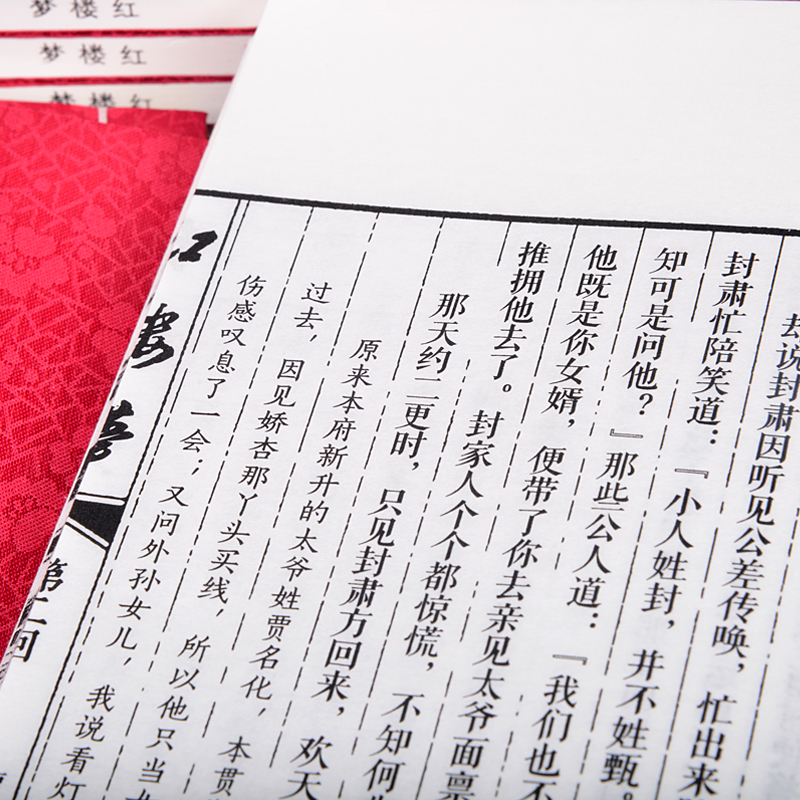 梦楼红
梦楼红
梦楼红
却说封肃因听见公差传唤，忙出来
封肃忙陪笑道：『小人姓封，并不姓甄。
知可是问他？』那些公人道：『我们也不
他既是你女婿，便带了你去亲见太爷面禀
推拥他去了。封家人个个都惊慌，不知何
那天约二更时，只见封肃方回来，欢天
原来本府新升的太爷姓贾名化，本贯
过去，因见娇杏那丫头买线，所以他只当
伤感叹息了一会；又问外孙女儿，我说看灯
红楼梦
第二回